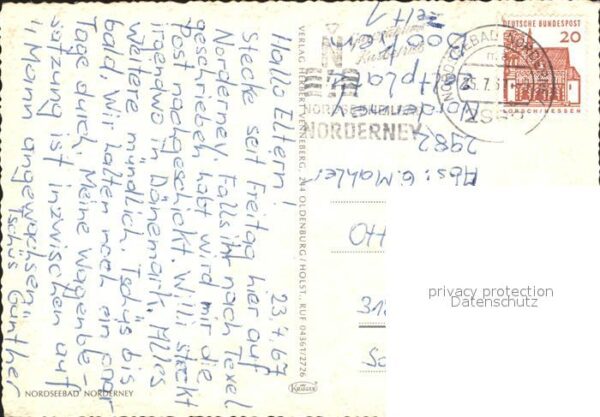 23.7.67
Hallo Eltern!
Stecke seit Freitag hier auf
Norderney. Falls ihr nach Texel
geschrieben habt wird mir die
Post nachgeschickt. Willi steckt
irgendwo in Dänemark. Alles
weitere mündlich. Tschüs bis
bald. Wir halten noch ein paar
Tage durch. Meine Wagenbe-
satzung ist inzwischen auf
11 Mann angewachsen.
Tschüs Günther
NORDSEEBAD NORDERNEY
VERLAG HERBERT VENNEBERG, 244 OLDENBURG/HOLST., RUF 04361/2726
Krüger
Abs: G. Mahler
2982 Norderney
Zeltpla
Zelt 1
NORDSEEHEILBAD
NORDERNEY
NORDSEEBAD
2982
DEUTSCHE BUNDESPOST
20
LORSCH/HESSEN
privacy protection
Datenschutz